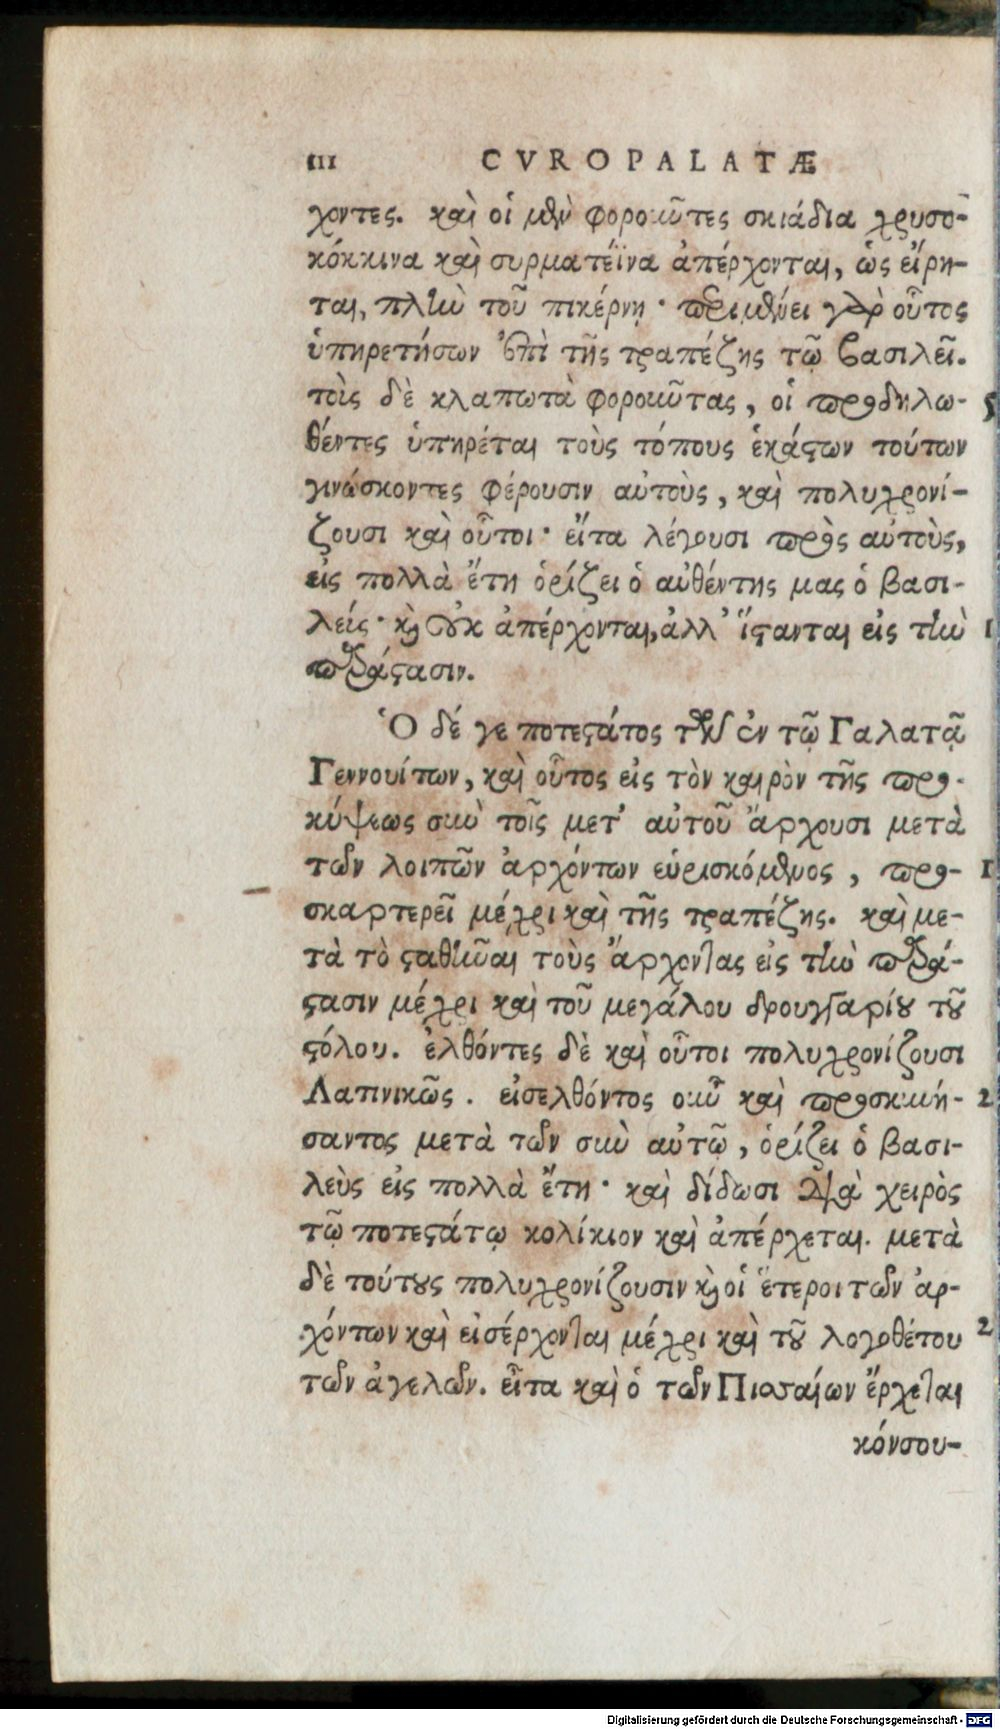 III CVROPALATÆ
χοντες. καὶ οἱ μὲν φοροῦντες σκιάδια χρυσο-
κόκκινα καὶ συρματέϊνα ἀπέρχονται, ὡς εἴρη-
ται, πλὴν τοῦ πικέρνη· περιμένει γὰρ οὗτος
ὑπηρετήσων ἐπὶ τῆς τραπέζης τῷ βασιλεῖ.
τοὶς δὲ κλαπωτὰ φοροῦντας, οἱ προδηλω- 5
θέντες ὑπηρέται τοὺς τόπους ἑκάστων τούτων
γινώσκοντες φέρουσιν αὐτοὺς, καὶ πολυχρονί-
ζουσι καὶ οὗτοι· εἴτα λέγουσι πρὸς αὐτοὺς,
εἰς πολλὰ ἔτη ὁρίζει ὁ αὐθέντης μας ὁ βασι-
λείς· καὶ οὐκ ἀπέρχονται, ἀλλ᾽ ἵστανται εἰς τὴν 1
παράστασιν.
Ὁ δέ γε ποτεστάτος τῶν ἐν τῷ Γαλατᾷ
Γεννουίτων, καὶ οὗτος εἰς τὸν καιρὸν τῆς προ-
κύψεως σὺν τοῖς μετ᾽ αὐτοῦ ἄρχουσι μετὰ
τῶν λοιπῶν ἀρχόντων εὑρισκόμενος, προσ- 1
σκαρτερεῖ μέχρι καὶ τῆς τραπέζης. καὶ με-
τὰ τὸ σταθῆναι τοὺς ἄρχοντας εἰς τὴν παρά-
στασιν μέχρι καὶ τοῦ μεγάλου δρουγγαρίου τοῦ
στόλου. ἐλθόντες δὲ καὶ οὗτοι πολυχρονίζουσι
Λατινικῶς. εἰσελθόντος οὖν καὶ προσκυνή- 2
σαντος μετὰ τῶν σὺν αὐτῷ, ὁρίζει ὁ βασι-
λεὺς εἰς πολλὰ ἔτη· καὶ δίδωσι διὰ χειρὸς
τῷ ποτεστάτῳ κολίκιον καὶ ἀπέρχεται. μετὰ
δὲ τούτους πολυχρονίζουσιν καὶ οἱ ἕτεροι τῶν ἀρ-
χόντων καὶ εἰσέρχονται μέχρι καὶ τοῦ λογοθέτου 2
τῶν ἀγελῶν. εἶτα καὶ ὁ τῶν Πισσαίων ἔρχεται
κόνσου-
Digitalisierung gefördert durch die Deutsche Forschungsgemeinschaft - DFG